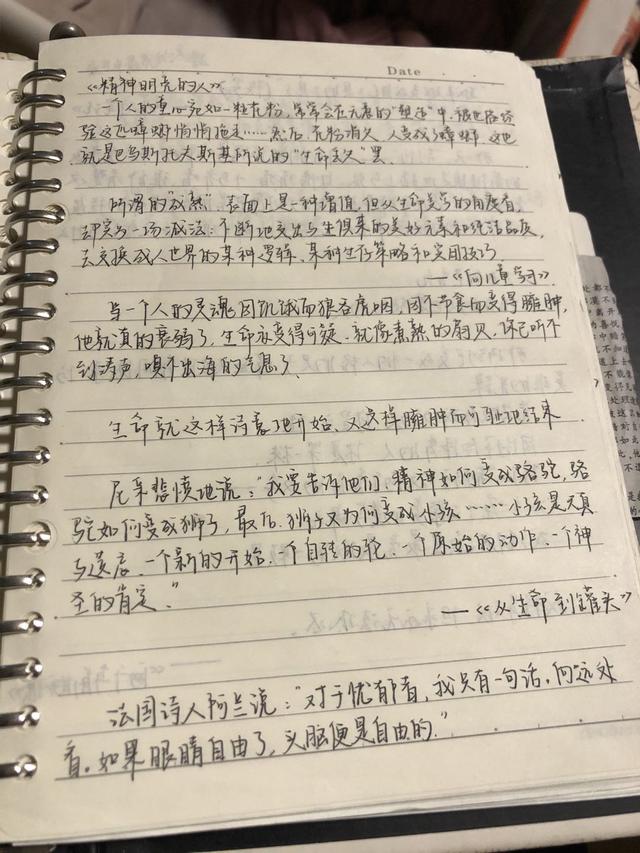 Date
《精神明亮的人》
一个人的童心宛如一粒花粉，常常会在无意的"塑造"中，被世俗经
验这匹蟑螂悄悄拖走……然后，花粉消失，人变成了蟑螂。这也
就是巴乌斯托夫斯基所说的"生命丢失"罢。
所谓的"成熟"，表面上是一种增值，但从生命美学的角度看，
却实为一场减法：不断地交出与生俱来的美好元素和纯洁品质，
去交换成人世界的某种逻辑、某种生存策略和实用技巧。
——《向儿童学习》
当一个人的灵魂因饥饿而狼吞虎咽，因不节食而变得臃肿，
他就真的衰弱了，生命亦变得可疑，就像煮熟的扇贝，你已听不
到涛声，嗅不出海的气息了。
生命就这样诗意地开始，又这样臃肿而可耻地结束
尼采悲愤地说："我要告诉他们，精神如何变成骆驼，骆
驼如何变成狮子，最后，狮子又为何变成小孩……小孩是天真
与遗忘，一个新的开始，一个自转的轮，一个原始的动作，一个神
圣的肯定。"
——《从生命到罐头》
法国诗人阿兰说："对于忧郁者，我只有一句话，向远处
看。如果眼睛自由了，头脑便是自由的。"